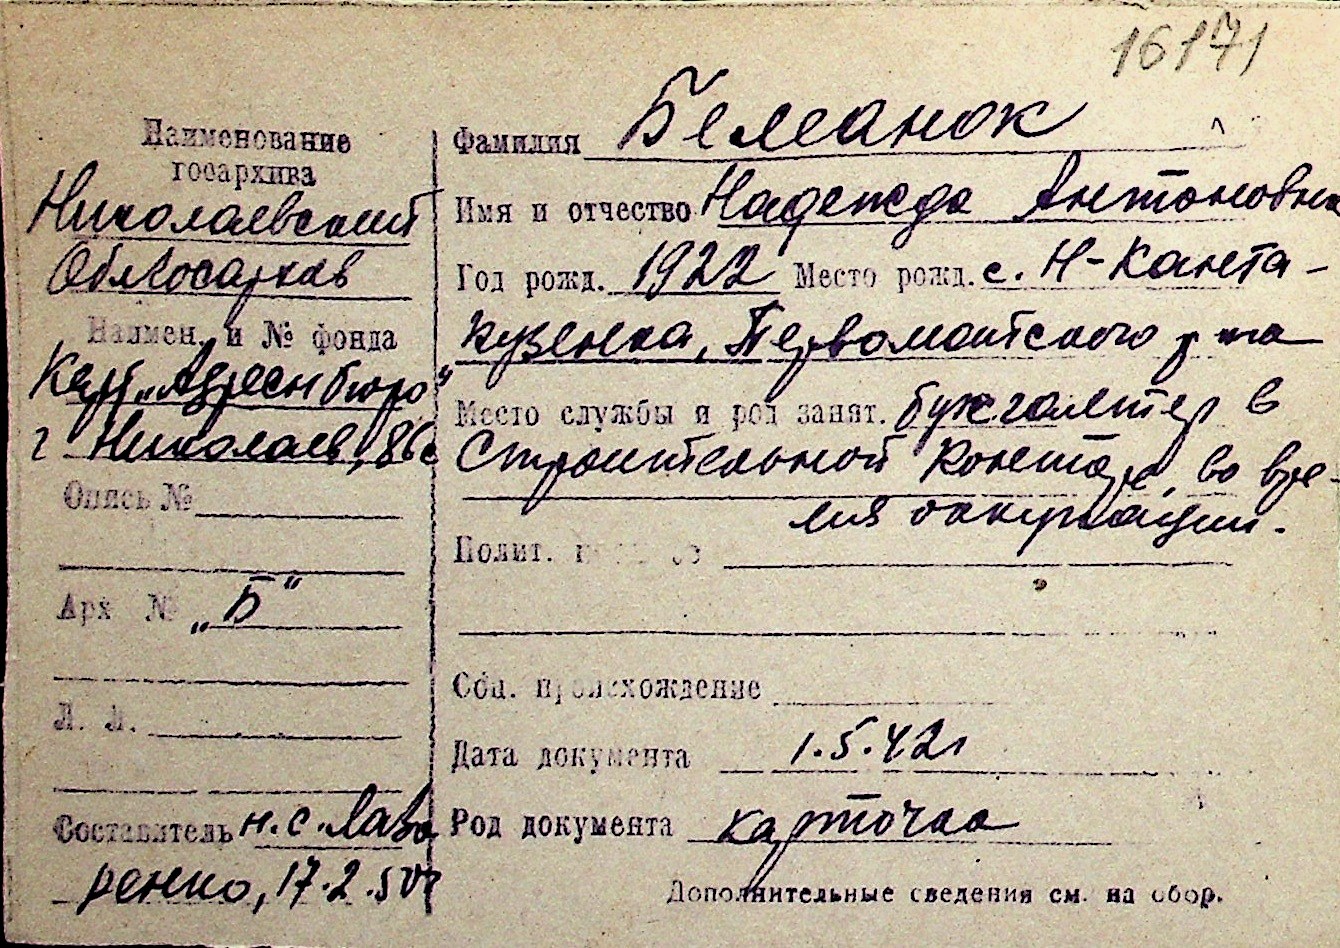 16171
Наименование
госархива
Николаевский
Облгосархив
Наимен. и № фонда
Карт. „Адресн бюро"
г Николаев, 86с
Опись №
Арх № „Б"
Л. Л.
Составитель н.с. Лав
ренко, 17.2.50г
Фамилия
Имя и отчество Надежда Антоновна
Год рожд. 1922 Место рожд. с. Н-Канта-
кузенка, Первомайского р-на
Место службы и род занят. бухгалтер в
Строительной конторе, во вре-
мя оккупации.
Полит.
Соц. происхождение
Дата документа 1.5.42г
Род документа карточка
Дополнительные сведения см. на обор.